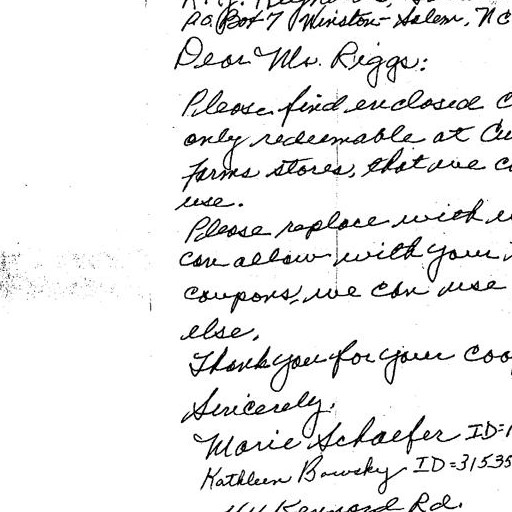 P.O. Box 7 Winston-Salem, NC
Dear Mr. Riggs:
Please find enclosed
only redeemable at
Farms stores, that we
use.
Please replace with
can allow with your
coupons, we can use
else.
Thank you for your
Sincerely,
Marie Schaefer ID=
Kathleen Bowsky ID=31535
Rd.